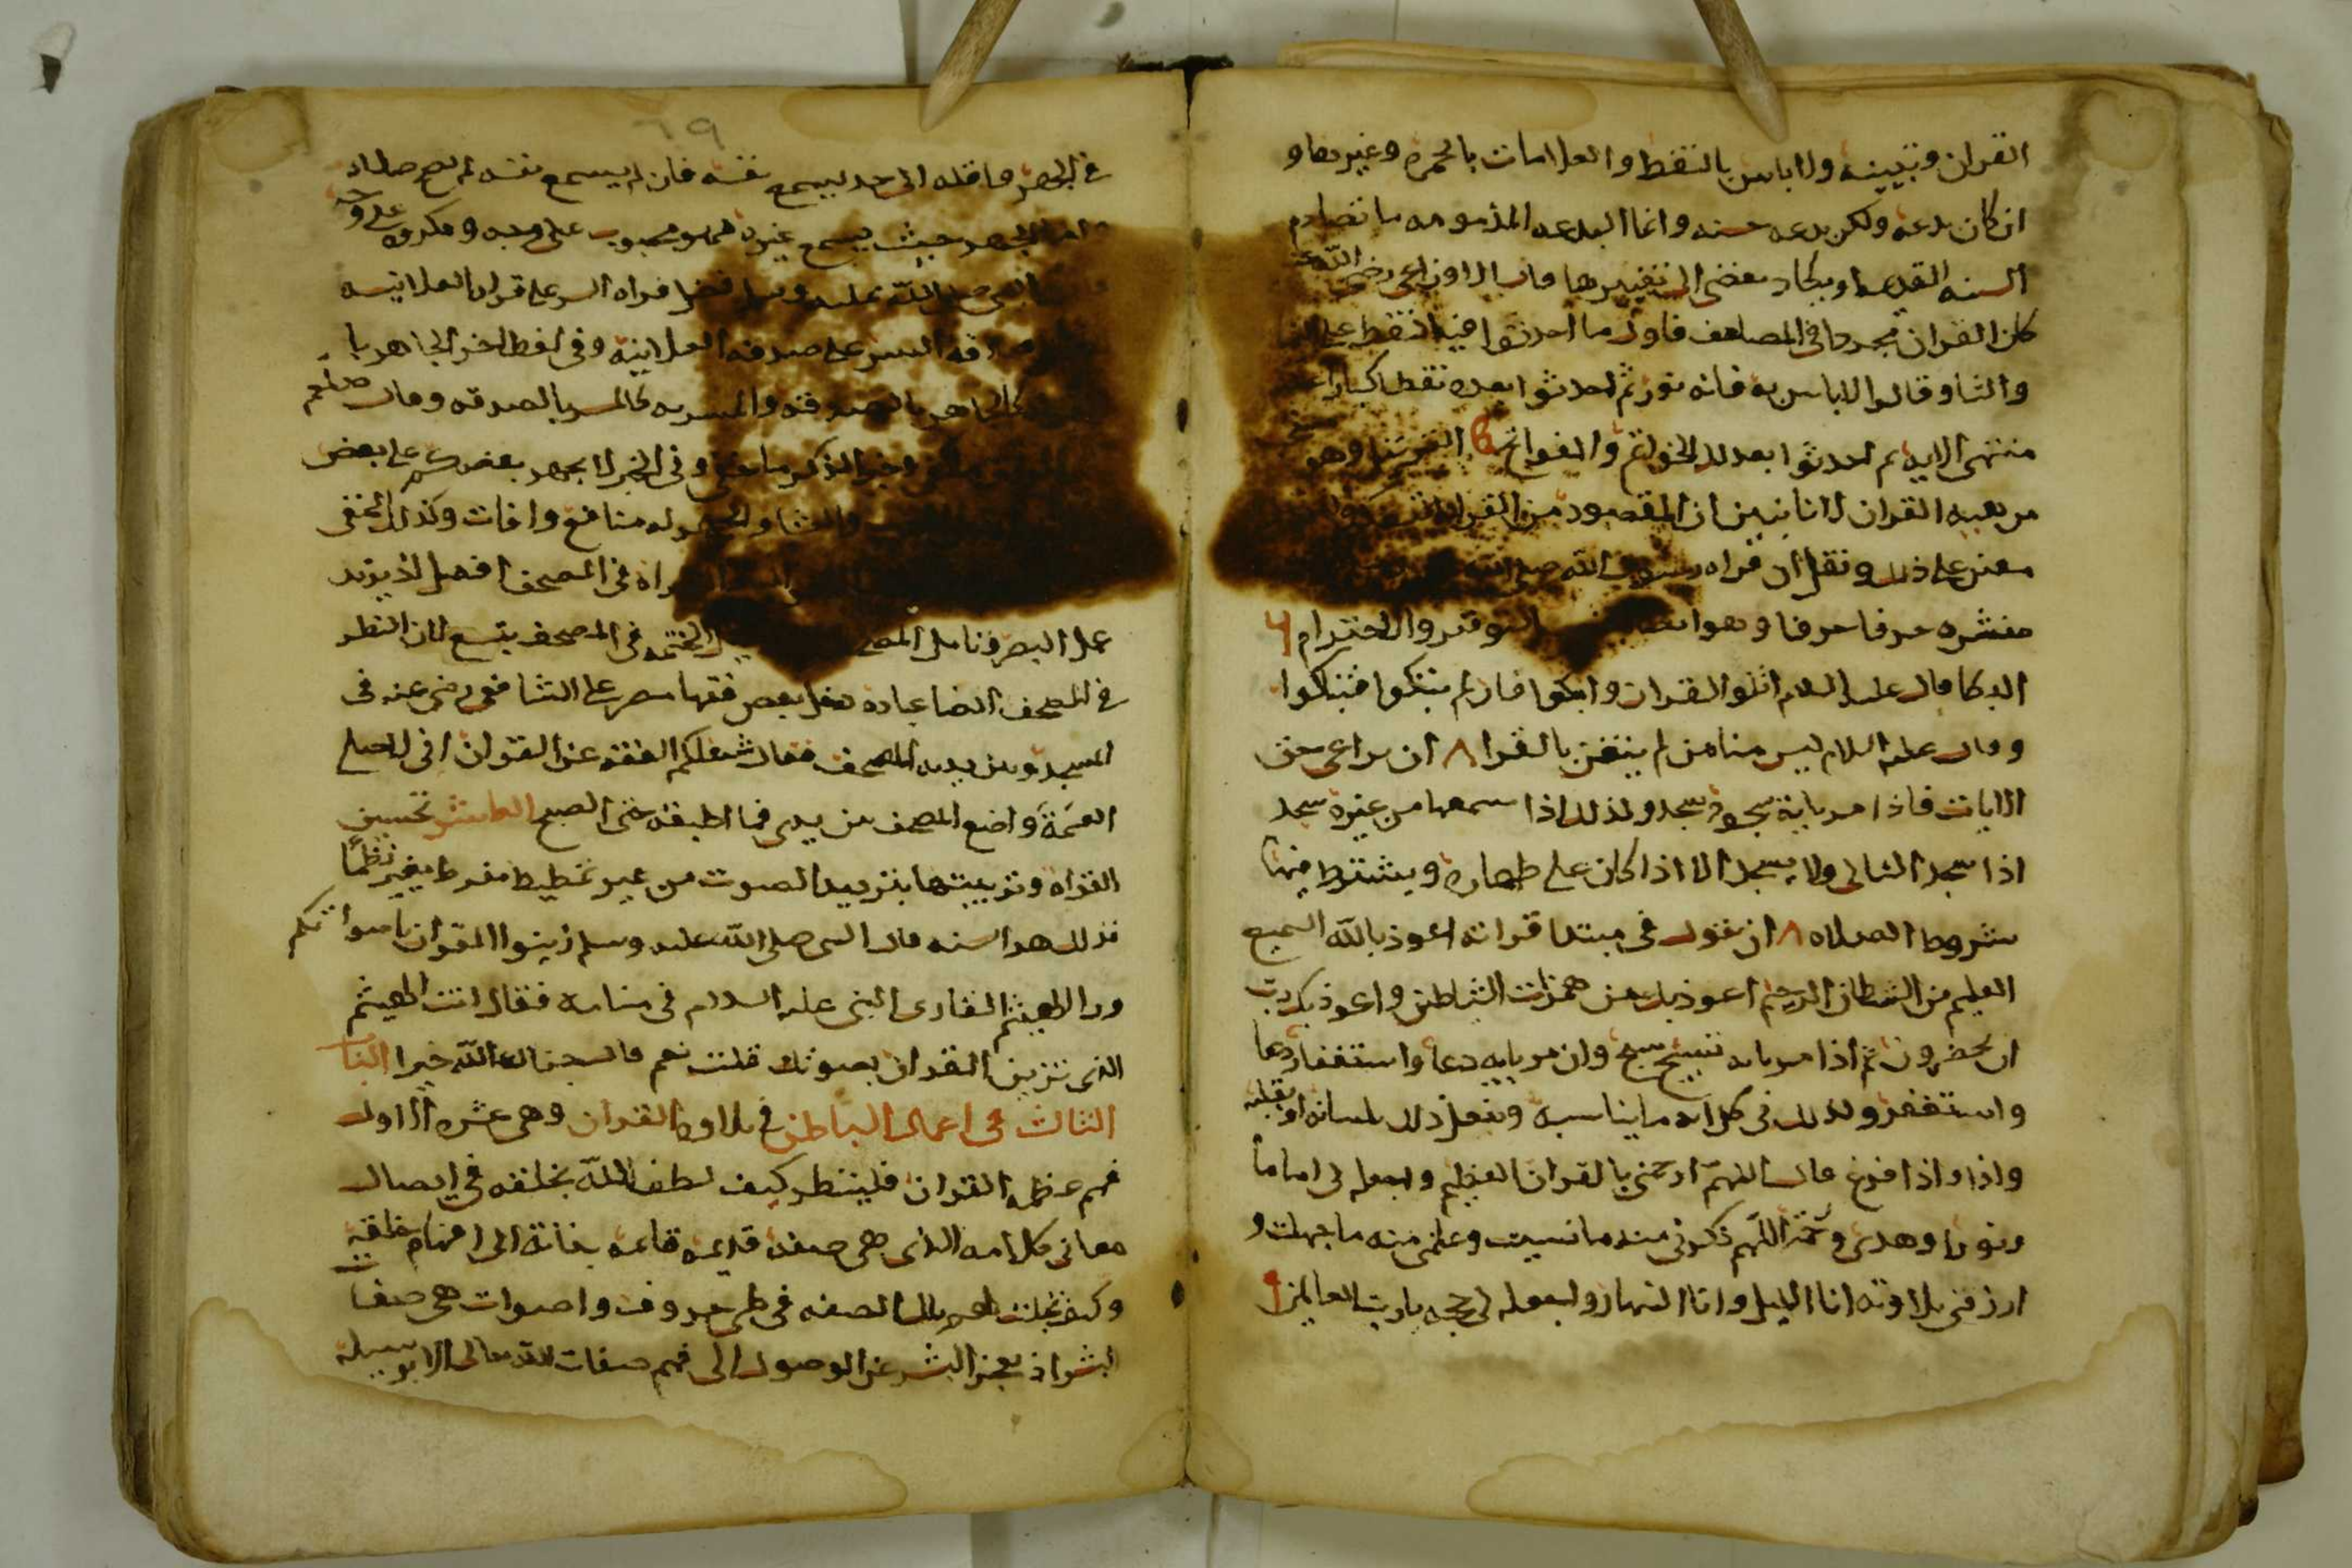 القران وتبيينه ولا باس بالنقط والعلامات بالحمره وغيرها و
ان كان بدعة ولكن بدعه حسنه وانما البدعه المذمومه ما تصادم
السنه القديمه او يكاد يفضى الى تغييرها قال الاوزاعى رضى الله عنه
كان القران مجردا فى المصاحف فاول ما احدثوا فيه النقط على
والتا وقالوا لا باس به فانه نور ثم احدثوا بعده نقطا كبارا عند
منتهى الايه ثم احدثوا بعد ذلك الخواتم والفواتح الترتيل وهو
من هيبه القران لانا نبين ان المقصود من القراه التفكر
معين على ذلك ونقل ان قراه رسول الله صلى الله
مفسره حرفا حرفا وهو التوقير والاحترام
البكا قال عليه السلام اتلوا القران وابكوا فان لم تبكوا فتباكوا
وقال عليه السلام ليس منا من لم يتغن بالقران ان يراعى حق
الايات فاذا مر باية سجود سجد وكذلك اذا سمعها من غيره سجد
اذا سجد التالى ولا يسجد الا اذا كان على طهاره ويشترط فيها
شروط الصلاه ٨ ان يقول فى مبتدا قراته اعوذ بالله السميع
العليم من الشيطان الرجيم اعوذ بك من همزات الشياطين واعوذ بك رب
ان يحضرون ثم اذا مر بايه تسبيح سبح وان مر بايه دعا واستغفار دعا
واستغفر وكذلك فى كل ايه ما يناسبه ويفعل ذلك بلسانه او بقلبه
واذا واذا فرغ قال اللهم ارحمنى بالقران العظيم واجعله لى اماما
ونورا وهدى ورحمة اللهم ذكرنى منه ما نسيت وعلمنى منه ما جهلت و
ارزقنى تلاوته انا الليل وانا النهار واجعله لى حجه يا رب العالمين ٩
٦٩
فى الجهر واقله الى حد يسمع نفسه فان لم يسمع نفسه لم تصح صلاته
واما الجهر حيث يسمع غيره فهو محبوب على وجه ومكروه على وجه
النبى صلى الله عليه وسلم فضل قراه السر على قراه العلانيه
صدقه السر على صدقه العلانيه وفى لفظ اخر الجاهر با
كالجاهر بالصدقه والمسر به كالمسر بالصدقه وقال صلعم
وخير الذكر ما خفى وفى الخبر لا يجهر بعضكم على بعض
والعشا والجهر له منافع وافات وكذلك المخفى
القراه فى المصحف افضل اذ يزيد
عمل البصر وتامل المصحف الختمه فى المصحف بتسع لان النظر
فى المصحف ايضا عباده دخل بعض فقها مصر على الشافعى رضى عنه فى
المسجد وبين يديه المصحف فقال شغلكم الفقه عن القران انى لاصلى
العتمة واضع المصحف بين يدى فما اطبقه حتى الصبح العاشر تحسين
القراه وتزيينها بترديد الصوت من غير تمطيط مفرط يغير نظما
فذلك هو السنه قال النبى صلى الله عليه وسلم زينوا القران باصواتكم
وراى الهيثم القارى النبى عليه السلام فى منامه فقال انت الهيثم
الذى تزين القران بصوتك قلت نعم قال جزاك الله خيرا الباب
الثالث فى اعمال الباطن فى تلاوه القران وهى عشره الاول
فهم عظمه القران فلينظر كيف لطف الله بخلقه فى ايصال
معانى كلامه الذى هى صفه قديمه قايمه بذاته الى افهام خلقه
وكيف تجلت لهم تلك الصفه فى طى حروف واصوات هى صفات
البشر اذ يعجز البشر عن الوصول الى فهم صفات الله تعالى الا بوسيله